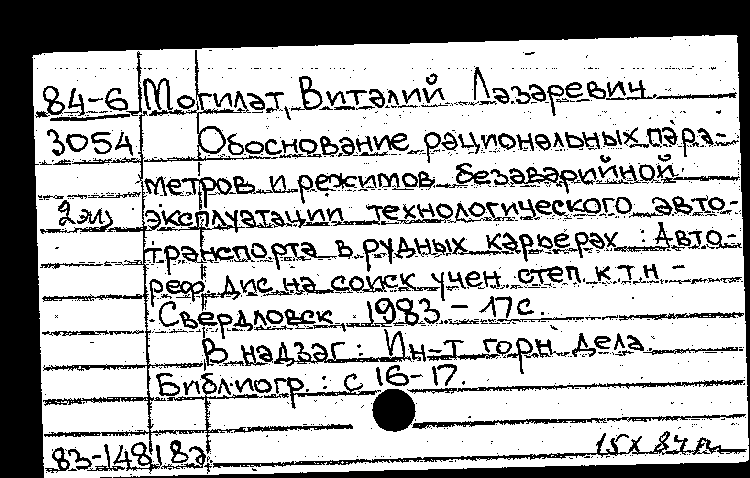 84-6 Могилат, Виталий Лазаревич.
3054 Обоснование рациональных пара-
метров и режимов безаварийной
2 эк, эксплуатации технологического авто-
транспорта в рудных карьерах : Авто-
реф дис на соиск учен степ к.т.н –
Свердловск, 1983 – 17 с.
В надзаг : Ин-т горн дела.
Библиогр. : с 16-17.
83-14818а 15 X 84